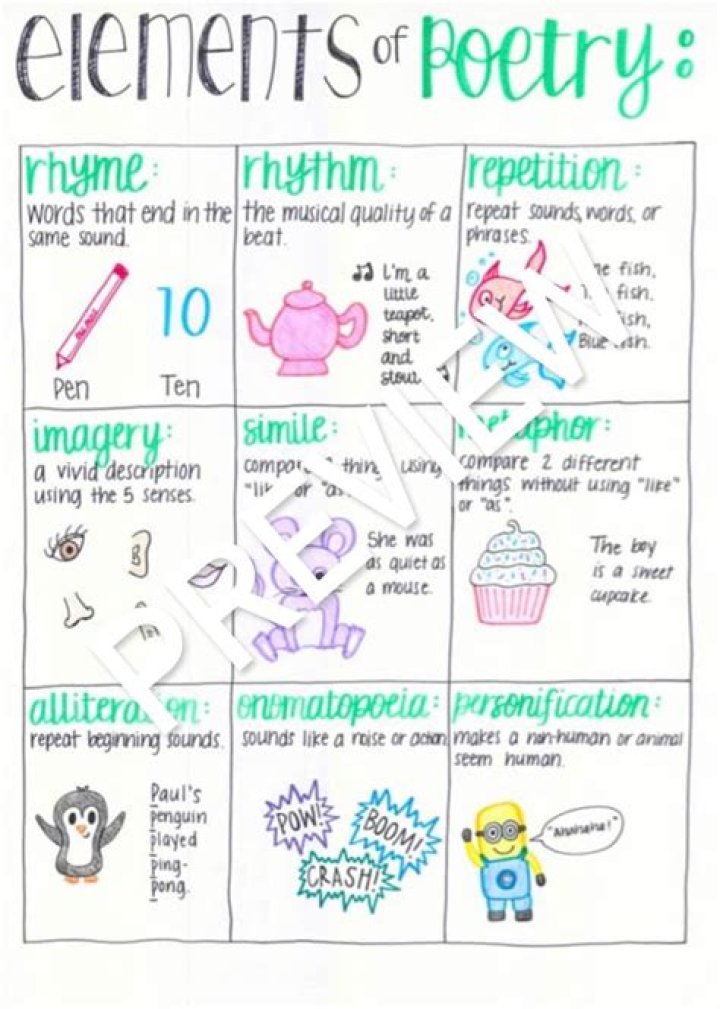 elements of Poetry:
rhyme:
words that end in the
same sound.
Pen
10
Ten
rhythm:
the musical quality of a
beat.
I'm a
little
teapot,
short
and
stout
repetition:
repeat sounds, words, or
phrases.
fish,
fish.
fish,
Blue fish.
imagery:
a vivid description
using the 5 senses.
simile:
compare 2 things using
"like" or "as".
She was
as quiet as
a mouse.
metaphor:
compare 2 different
things without using "like"
or "as".
The boy
is a sweet
cupcake.
alliteration:
repeat beginning sounds.
Paul's
penguin
played
ping-
pong.
onomatopoeia:
sounds like a noise or action.
POW!
BOOM!
CRASH!
personification:
makes a non-human or animal
seem human.
"Ahahaha!"
PREVIEW